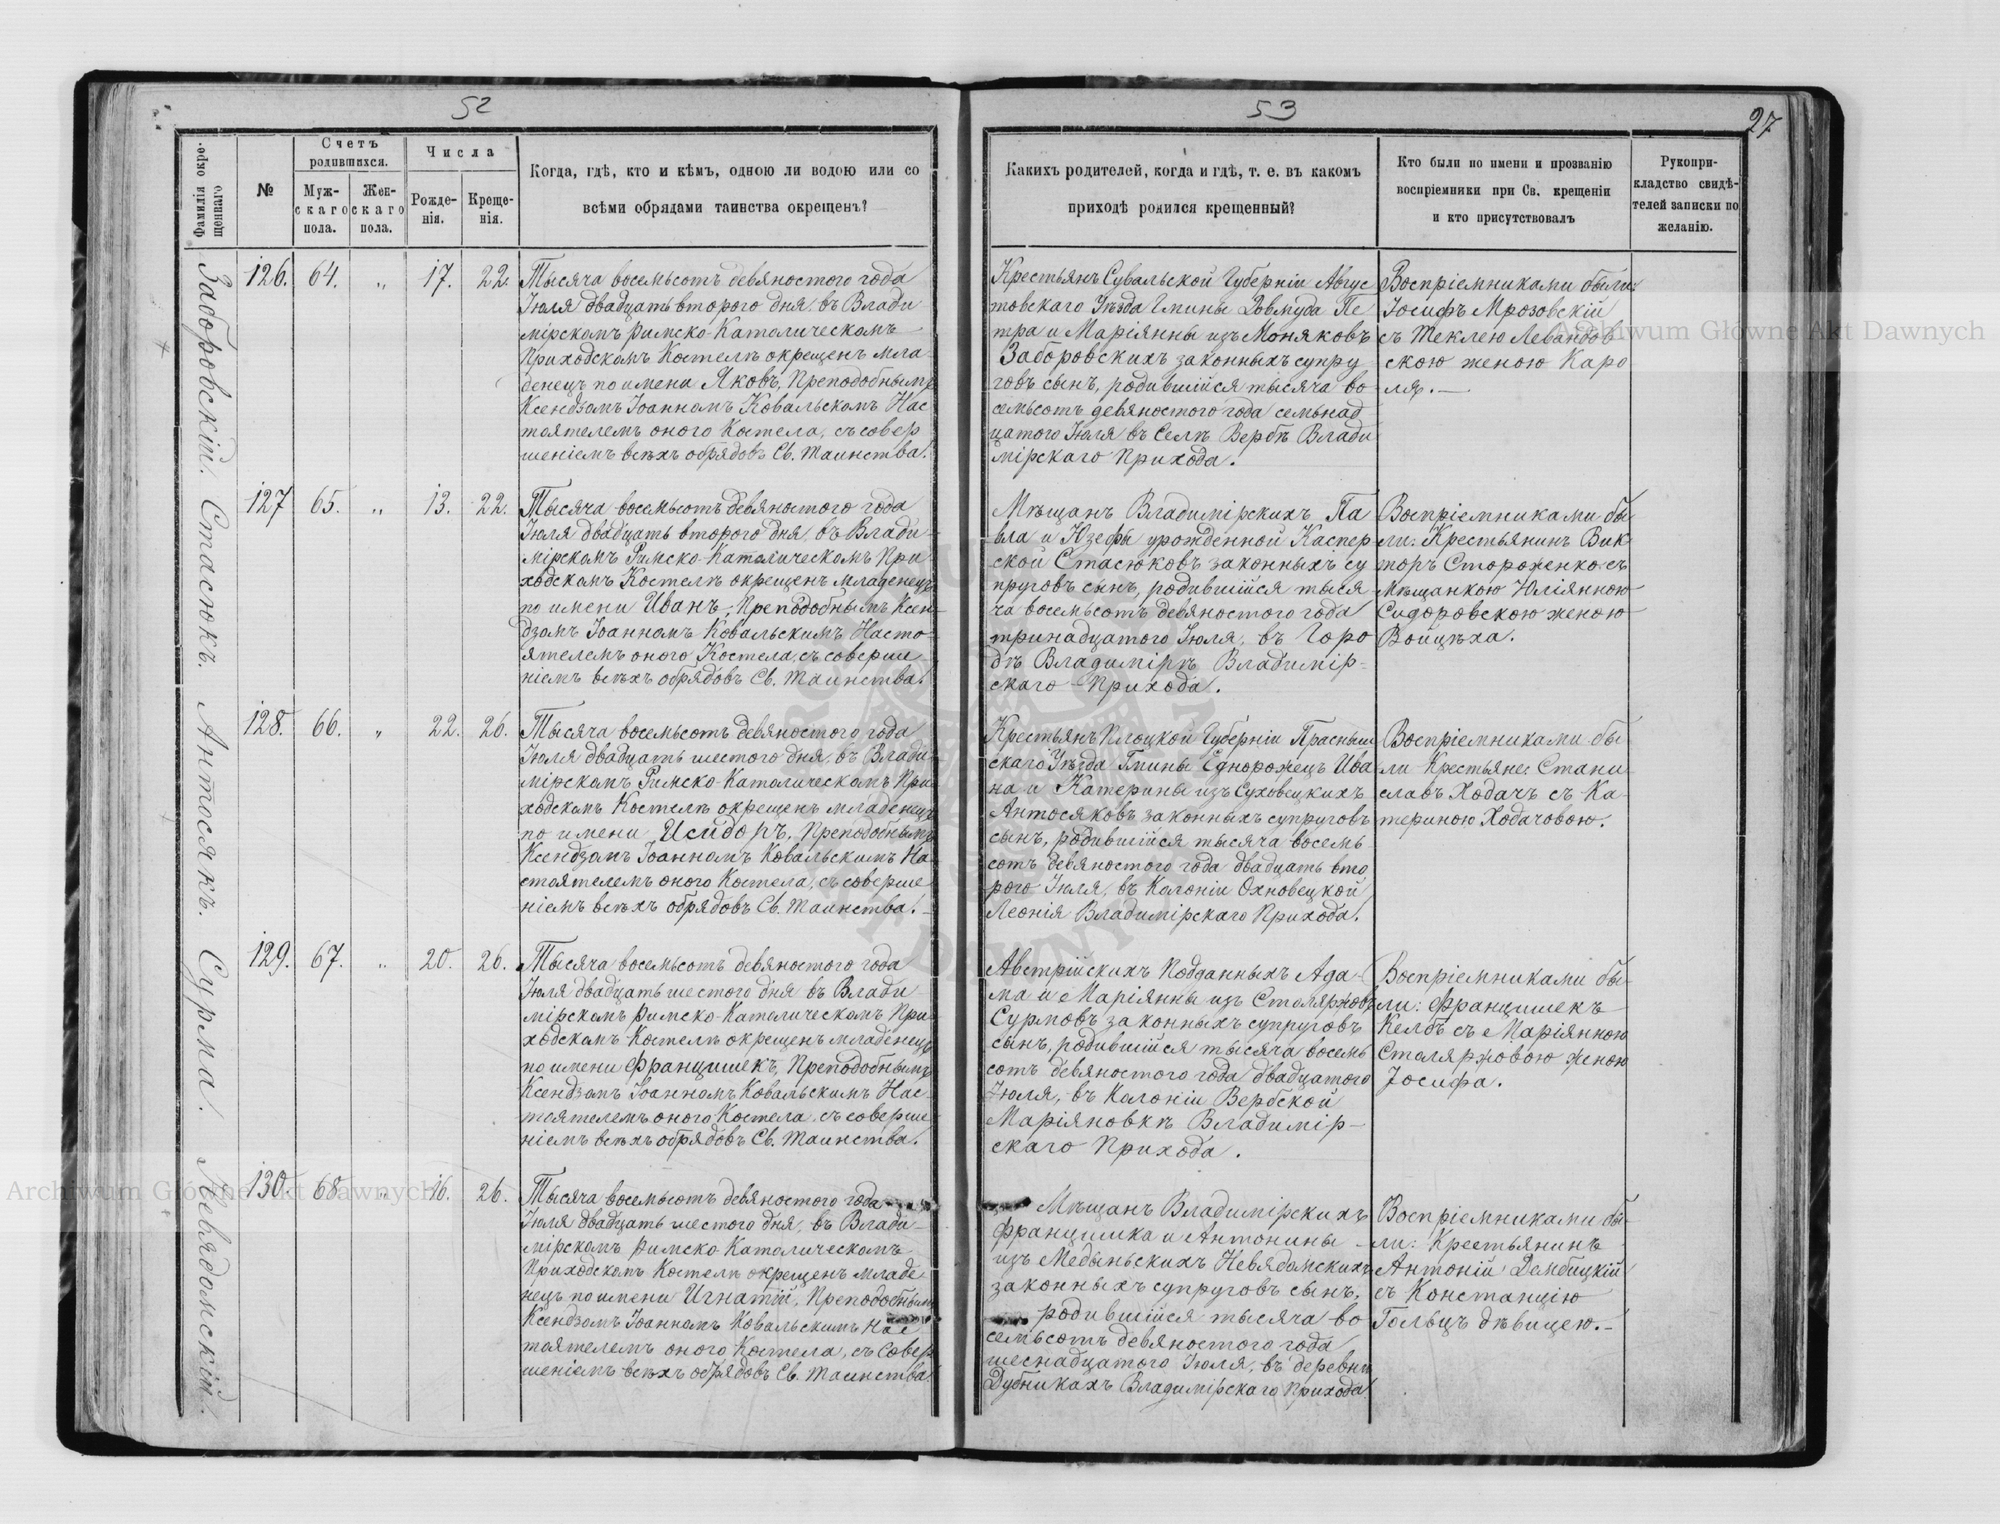 52
Фамилія окре-
щеннаго
№
Счетъ
родившихся.
Муж-
скаго
пола.
Жен-
скаго
пола.
Числа
Рожде-
нія.
Креще-
нія.
Когда, гдѣ, кто и кѣмъ, одною ли водою или со
всѣми обрядами таинства окрещенъ?
Заборовскій.
126. 64. „ 17. 22.
Тысяча восемьсотъ девяностого года
Іюля двадцать второго дня, въ Влади
мірскомъ Римско-Католическомъ
Приходскомъ Костелѣ окрещенъ мла-
денецъ по имени Яковъ, Преподобнымъ
Ксендзомъ Іоанномъ Ковальскомъ Нас
тоятелемъ оного Костела, съ совер
шеніемъ всѣхъ обрядовъ Св. Таинства.
Стасюкъ.
127 65. „ 13. 22.
Тысяча восемьсотъ девяностого года
Іюля двадцать второго дня, въ Влади-
мірскомъ Римско-Католическомъ При
ходскомъ Костелѣ окрещенъ младенецъ
по имени Иванъ, Преподобнымъ Ксен-
дзомъ Іоанномъ Ковальскимъ Насто-
ятелемъ оного Костела, съ соверше
ніемъ всѣхъ обрядовъ Св. Таинства.
Антосякъ.
128. 66. „ 22. 26.
Тысяча восемьсотъ девяностого года
Іюля двадцать шестого дня, въ Влади
мірскомъ Римско-Католическомъ При
ходскомъ Костелѣ окрещенъ младенецъ
по имени Исидоръ, Преподобнымъ
Ксендзомъ Іоанномъ Ковальскимъ На-
стоятелемъ оного Костела, съ соверше
ніемъ всѣхъ обрядовъ Св. Таинства.
Сурма.
129. 67. „ 20. 26.
Тысяча восемьсотъ девяностого года
Іюля двадцать шестого дня въ Влади-
мірскомъ Римско-Католическомъ При
ходскомъ Костелѣ окрещенъ младенецъ
по имени Францишекъ, Преподобнымъ
Ксендзомъ Іоанномъ Ковальскимъ Нас-
тоятелемъ оного Костела, съ соверше
ніемъ всѣхъ обрядовъ Св. Таинства.
Невядомскій.
130. 68. „ 16. 26.
Тысяча восемьсотъ девяностого года
Іюля двадцать шестого дня, въ Влади-
мірскомъ Римско-Католическомъ
Приходскомъ Костелѣ окрещенъ младе
нецъ по имени Игнатій, Преподобнымъ
Ксендзомъ Іоанномъ Ковальскимъ Нас
тоятелемъ оного Костела, съ совер
шеніемъ всѣхъ обрядовъ Св. Таинства
53
27
Какихъ родителей, когда и гдѣ, т. е. въ какомъ
приходѣ родился крещенный?
Кто были по имени и прозванію
воспріемники при Св. крещеніи
и кто присутствовалъ
Рукопри-
кладство свидѣ-
телей записки по
желанію.
Крестьянъ Сувальской Губерніи Авгус
товскаго Уѣзда Гмины Довмуда Пе
тра и Маріянны изъ Моняковъ
Заборовскихъ законныхъ супру
говъ сынъ, родившійся тысяча во
семьсотъ девяностого года семьнад
цатого Іюля въ Селѣ Вербѣ Влади
мірскаго Прихода.
Воспріемниками были:
Іосифъ Мрозовскій
съ Теклею Левандов
скою женою Каро
ля.
Мѣщанъ Владимірскихъ Па
вла и Юзефы урожденной Каспер-
ской Стасюковъ законныхъ су
пруговъ сынъ, родившійся тыся
ча восемьсотъ девяностого года
тринадцатого Іюля, въ Горо
дѣ Владимірѣ Владимір-
скаго Прихода.
Воспріемниками бы
ли: Крестьянинъ Вик
торъ Стороженко съ
Мѣщанкою Юліянною
Сидоровскою женою
Войцѣха.
Крестьянъ Плоцкой Губерніи Прасныш
скаго Уѣзда Гмины Еднорожецъ Ива
на и Катерины изъ Суховецкихъ
Антосяковъ законныхъ супруговъ
сынъ, родившійся тысяча восемь
сотъ девяностого года двадцать вто
рого Іюля, въ Колоніи Охновецкой
Леонія Владимірскаго Прихода.
Воспріемниками бы
ли Крестьяне: Стани
славъ Ходачъ съ Ка-
териною Ходачовою.
Австрійскихъ Подданныхъ Ада-
ма и Маріянны изъ Столяржовъ
Сурмовъ законныхъ супруговъ
сынъ, родившійся тысяча восемь
сотъ девяностого года двадцатого
Іюля, въ Колоніи Вербской
Маріяновкѣ Владимір-
скаго Прихода.
Воспріемниками бы-
ли: Францишекъ
Келбъ съ Маріянною
Столяржовою женою
Іосифа.
Мѣщанъ Владимірскихъ
Францишка и Антонины
изъ Медыньскихъ Невядомскихъ
законныхъ супруговъ сынъ,
родившійся тысяча во
семьсотъ девяностого года
шеснадцатого Іюля, въ деревнѣ
Дубникахъ Владимірскаго Прихода
Воспріемниками бы-
ли: Крестьянинъ
Антоній Дембицкій
съ Констанцію
Гольцъ дѣвицею.
Archiwum Główne Akt Dawnych
Archiwum Główne Akt Dawnych